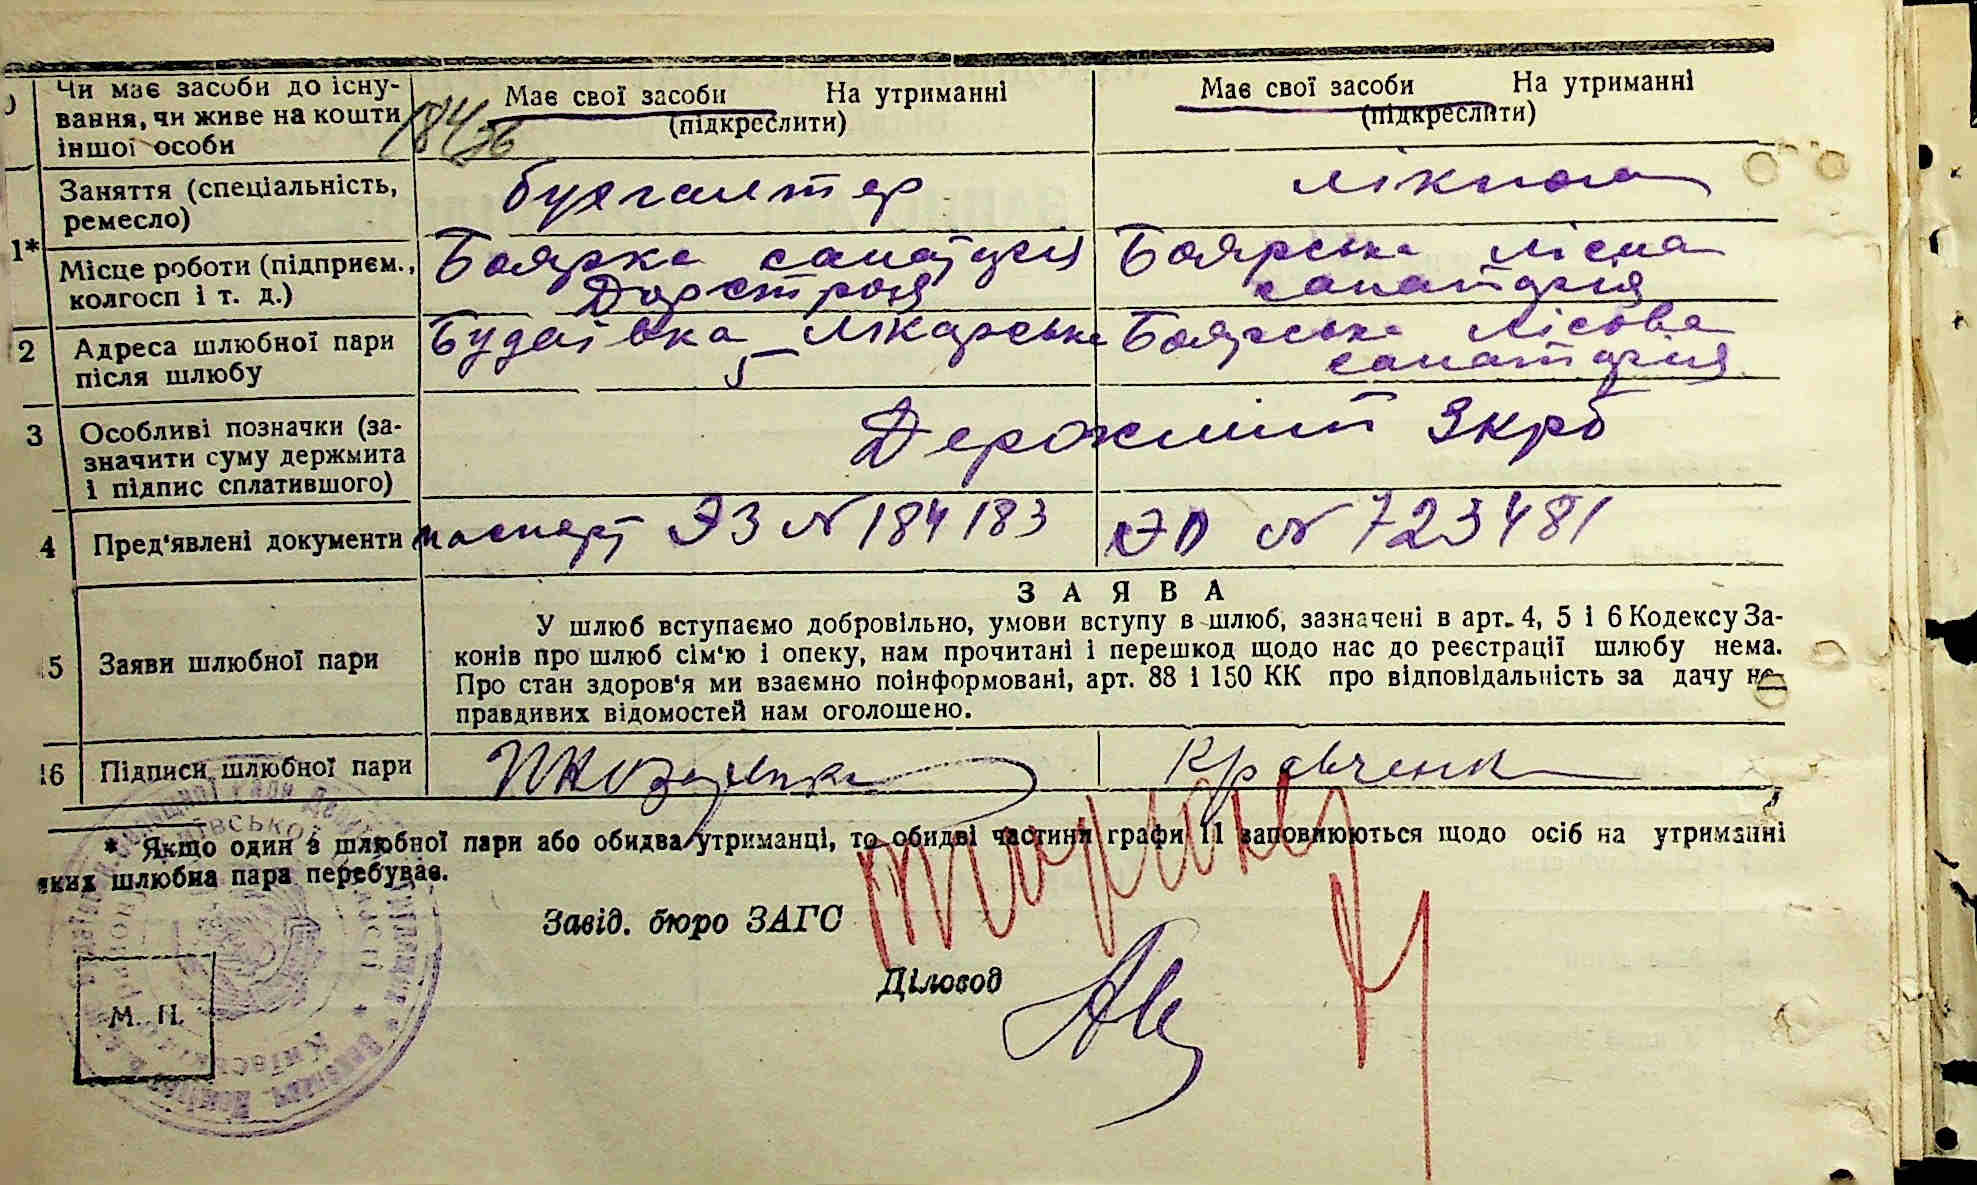 Чи має засоби до існу-
вання, чи живе на кошти
іншої особи
184/36
Має свої засоби На утриманні
(підкреслити)
Має свої засоби На утриманні
(підкреслити)
1*
Заняття (спеціальність,
ремесло)
бухгалтер
лікпом
Місце роботи (підприєм.,
колгосп і т. д.)
Боярка санаторія
Боярська лісна
санаторія
2
Адреса шлюбної пари
після шлюбу
Будаївка Лікарська
5
Боярська лісова
санаторія
3
Особливі позначки (за-
значити суму держмита
і підпис сплатившого)
Держмит 3 крб
4
Пред'явлені документи
паспорт ЭЗ № 184183
№ 723481
5
Заяви шлюбної пари
ЗАЯВА
У шлюб вступаємо добровільно, умови вступу в шлюб, зазначені в арт. 4, 5 і 6 Кодексу За-
конів про шлюб сім'ю і опеку, нам прочитані і перешкод щодо нас до реєстрації шлюбу нема.
Про стан здоров'я ми взаємно поінформовані, арт. 88 і 150 КК про відповідальність за дачу не-
правдивих відомостей нам оголошено.
16
Підписи шлюбної пари
Кравченк
* Якщо один з шлюбної пари або обидва утриманці, то обидві частини графи 11 заповнюються щодо осіб на утриманні
яких шлюбна пара перебуває.
Завід. бюро ЗАГС
Діловод
М. П.